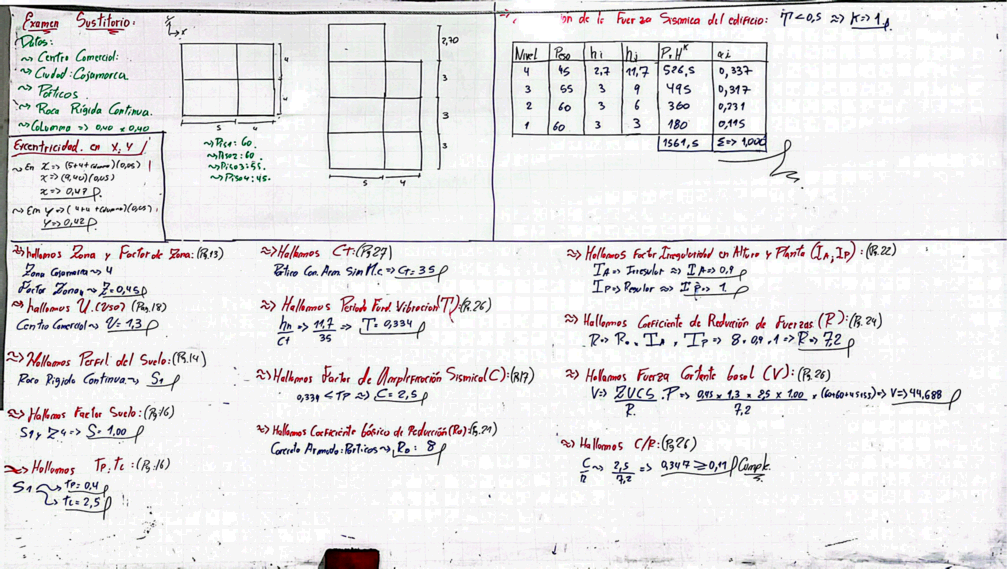 Examen Sustitorio:
Datos:
~> Centro Comercial:
~> Ciudad: Cajamarca
~> Pórticos
~> Roca Rígida Continua.
~> Columna => 0,40 x 0,40
y
x
4
4
5 4
~> Piso 1: 60.
~> Piso 2: 60
~> Piso 3: 55.
~> Piso 4: 45.
2,70
3
3
3
5 4
Excentricidad. en X, Y
~> En X => (5+4+columna)(0,05)
X => (9,40)(0,05)
X => 0,47
~> Em Y => (4+4+columna)(0,05)
Y => 0,42
on de la Fuerza Sísmica del edificio: T < 0,5 => K => 1
Nivel Peso hi hi Pi H^K αi
4 45 2,7 11,7 526,5 0,337
3 55 3 9 495 0,317
2 60 3 6 360 0,231
1 60 3 3 180 0,115
1561,5 Σ => 1,000
≈> hallamos Zona y Factor de Zona: (Pg.13)
Zona Cajamarca ~> 4
Factor Zona ~> Z=0,45
~> hallamos U. (Uso) (Pag.18)
Centro Comercial ~> U= 1,3
≈> Hallamos Perfil del Suelo: (Pg.14
Roca Rigida Continua. ~> S1
≈> Hallamos Factor Suelo: (Pg:16)
S1 y Z4 => S= 1,00
≈> Hallamos Tp; tL : (Pg:16)
S1 -> tp= 0,4
-> tL= 2,5
≈> Hallamos Ct: (Pg:27)
Pórtico Con. Arm. Sin M.c => Ct= 35
≈> Hallamos Periodo Fond. Vibración (T): (Pg.26)
hn/Ct => 11,7/35 => T= 0,334
≈> Hallamos Factor de Amplificación Sísmica (C): (Pg17)
0,334 < TP ~> C= 2,5
≈> Hallamos Coeficiente básico de Reducción (Ro): (Pg.21)
Concreto Armado: Pórticos ~> Ro: 8
≈> Hallamos Factor Irregularidad en Altura y Planta (IA; IP): (Pg.22)
IA => Irregular => IA => 0,9
IP => Regular => IP => 1
≈> Hallamos Coeficiente de Reducción de Fuerzas (R): (Pg.24)
R => Ro . IA . IP => 8 . 0,9 . 1 => R => 7,2
≈> Hallamos Fuerza Cortante basal (V): (Pg:26)
V => ZUCS/R .P => 0,45 x 1,3 x 2,5 x 1.00/7,2 x (60+60+45+55) => V => 44,688
≈> Hallamos C/R: (Pg26)
C/R ~> 2,5/7,2 => 0,347 ≥ 0,11 Cumple.